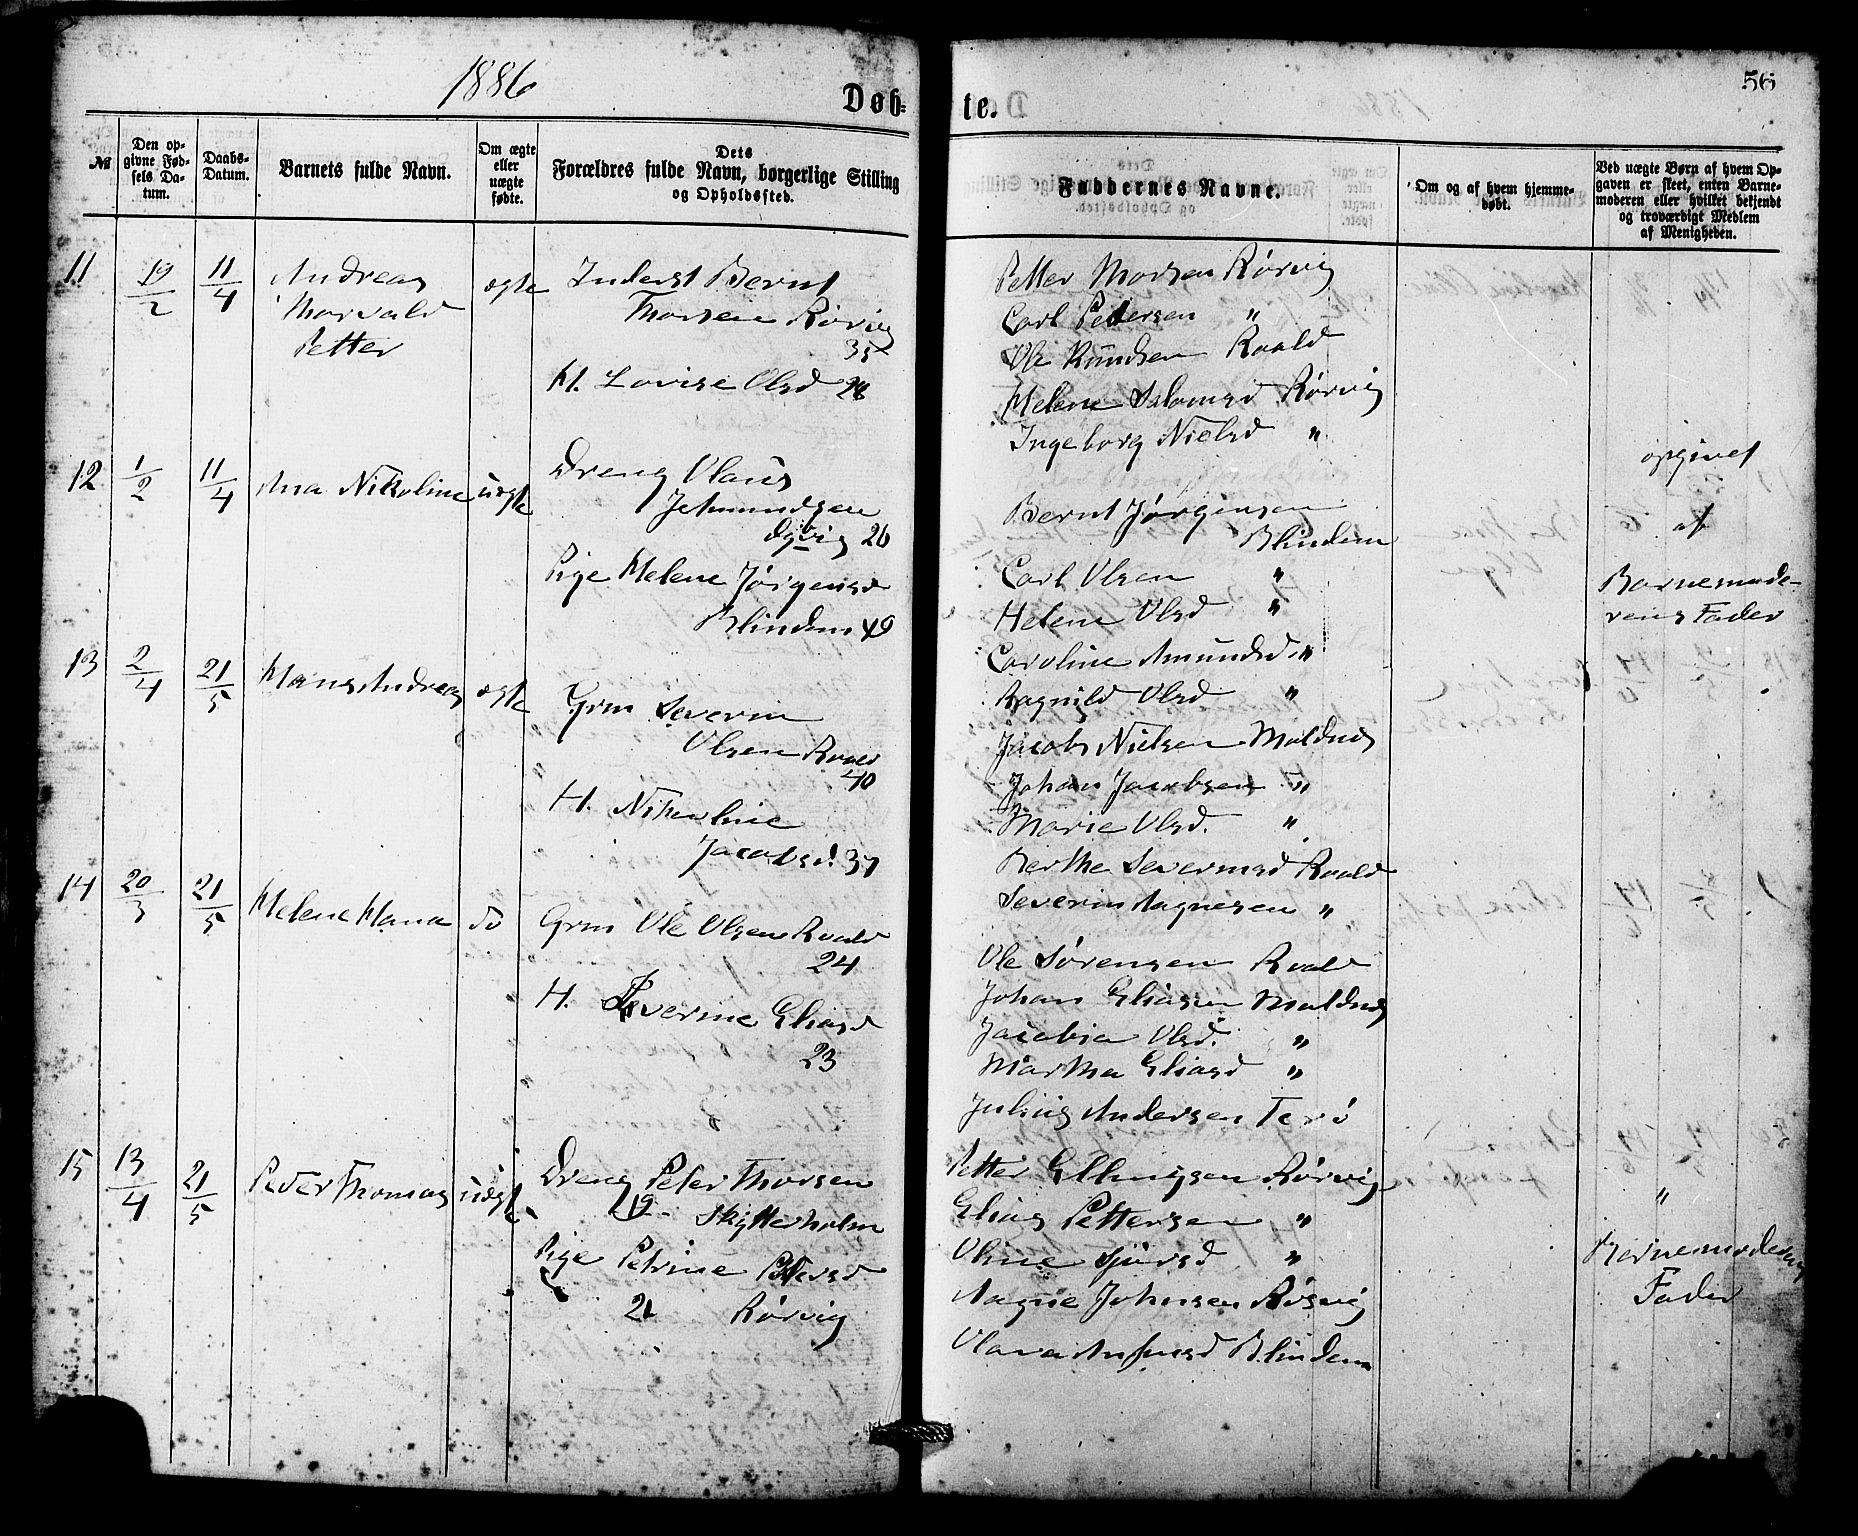 1886
Døb-
te.
56
№
Den op-
givne Fød-
sels Da-
tum.
Daabs-
Datum.
Barnets fulde Navn.
Om ægte
eller
uægte
fødte.
Dets
Forældres fulde Navn, borgerlige Stilling
og Opholdssted.
Faddernes Navne.
Om og af hvem hjemme-
døbt.
Ved uægte Børn af hvem Op-
gaven er skeet, enten Barne-
moderen eller hvilket bekjendt
og troværdigt Medlem
af Menigheden.
11
19/2
11/4
Andreas
Thorvald
Petter
ægte
Inderst Bernt
Thorsen Rørvig
35
H. Lovise Olsd 26
Petter Thorsen Rørvig
Carl Pettersen "
Ole Knudsen Roald
Helene Salomsd Rørvig
Ingeborg Nielsd "
12
1/2
11/4
Ana Nikoline
uægte
Dreng Olaus
Johnsen
Dyvig 26
Pige Helene Jørgensd
Blindem 49
Bernt Jørginsen
Blindem
Carl Olsen "
Helene Olsd "
Caroline Amundsd "
Ragnild Olsd "
opgivet
af
Barnemode-
rens Fader
13
2/4
21/5
Hans Andreas
ægte
Grm Severin
Olsen Roald
40
H. Nikoline
Jacobsd. 37
Jacob Nielsen Moldnes
Johan Jacobsen "
Marie Olsd. "
Berthe Severinsd Roald
Severin Aagnesen "
14
20/3
21/5
Helene Hana
do
Grm Ole Olsen Roald
24
H. Severine Eliasd
23
Ole Sørensen Roald
Johan Eliasen Moldnes
Jacobia Olsd. "
Martha Eliasd "
Julius Andersen Terø
15
13/4
21/5
Peder Thomas
uægte
Dreng Peter Thorsen
19 Skytterholm
Pige Petrine Pettersd
21 Rørvig
Petter Ellingsen Rørvig
Elias Pettersen "
Oline Sjursd "
Aagne Johnsen Rørvig
Olava Ansd Blindem
"
Barnemoderens
Fader